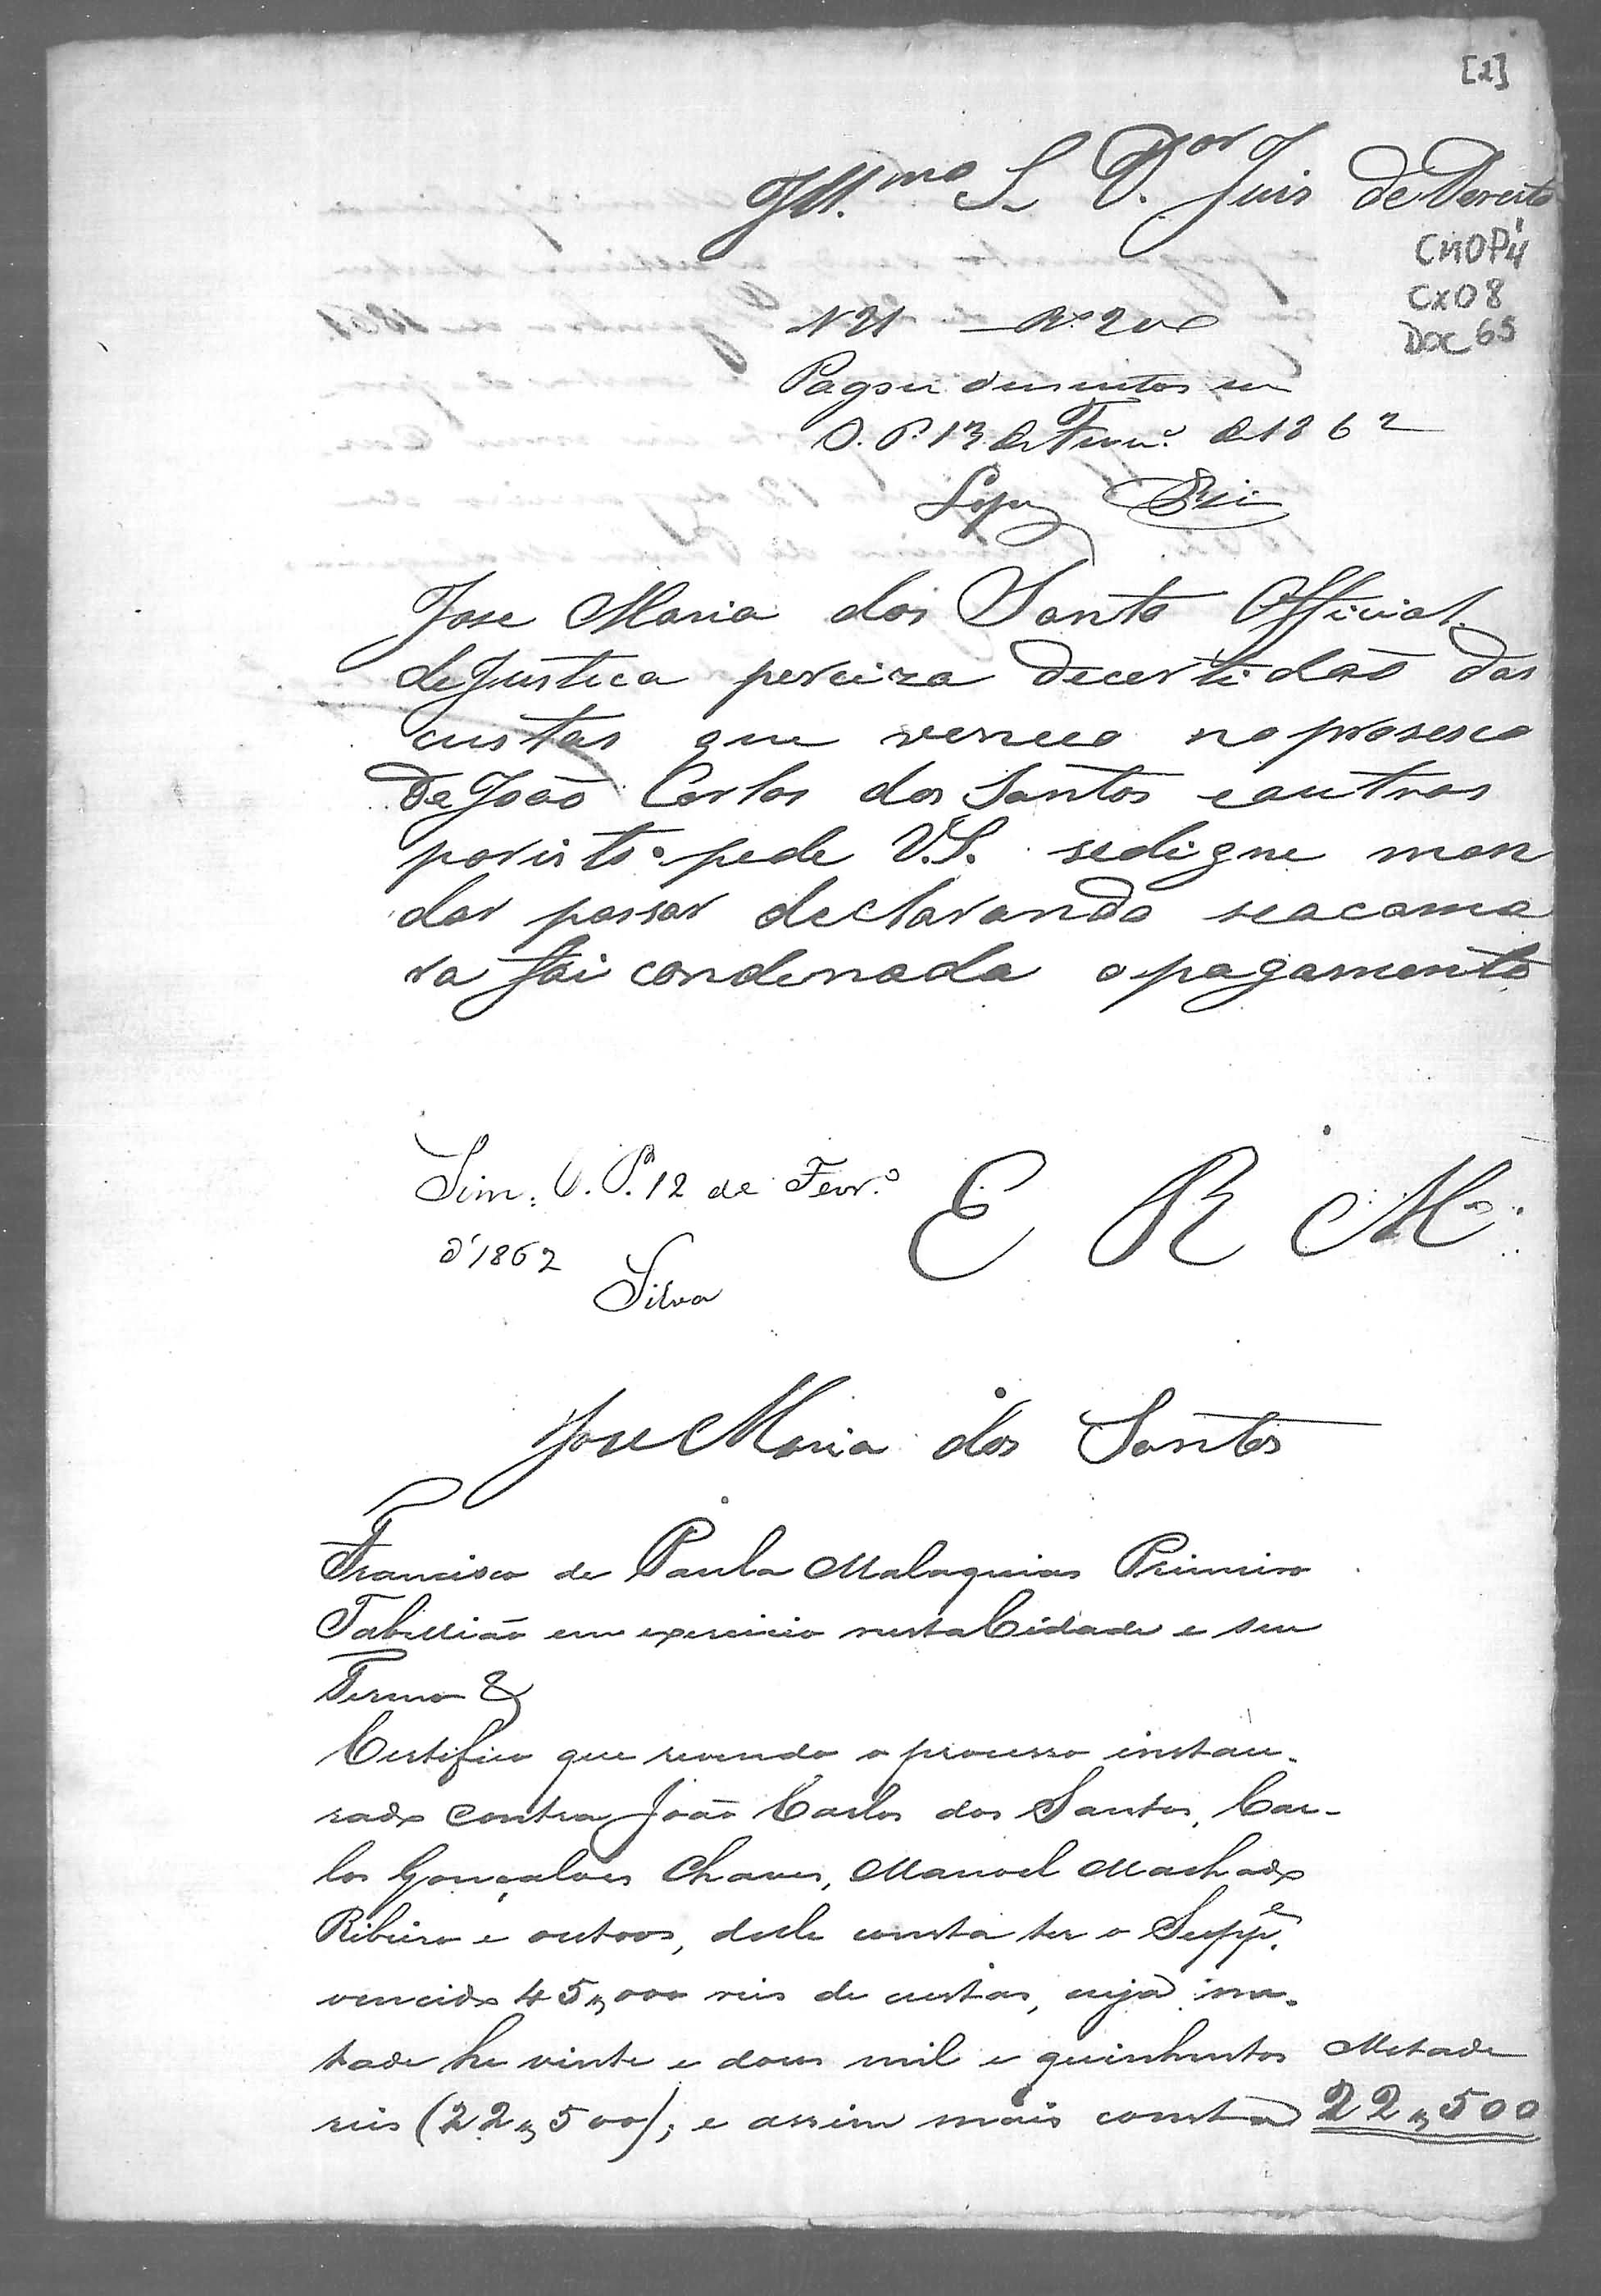 [1]
Ill.mo S. D.or Juis de Dereito
CMOP4
CX08
DOC 65
N 21 — Rs 200
Pagou dusentos rs
O. P. 13 de Fever.o de 1862
Jose Maria dos Santo Official
de Justica perciza decertidaõ das
custas que venceo no prosesco
De Joaõ Carlos dos Santos eoutros
poristo pede V.S. sedigne man
dar passar declarando seacama
ra foi condenada opagamento
Sim. O. P. 12 de Fevr.o
d'1862
Silva
E R M.
Jose Maria dos Santos
Francisco de Paula Malaquias Primeiro
Tabellião em exercicio nesta Cidade e seu
Termo &
Certifico que revendo o processo instau-
rado contra João Carlos dos Santos, Car-
los Gonçalves Chaves, Manoel Machado
Ribeiro e outros, delle consta ter o Supp.e
vencido 45,000 reis de custas, cuja me-
tade he vinte e dous mil e quinhentos
reis (22,500); e assim mais consta
Metade
22,500